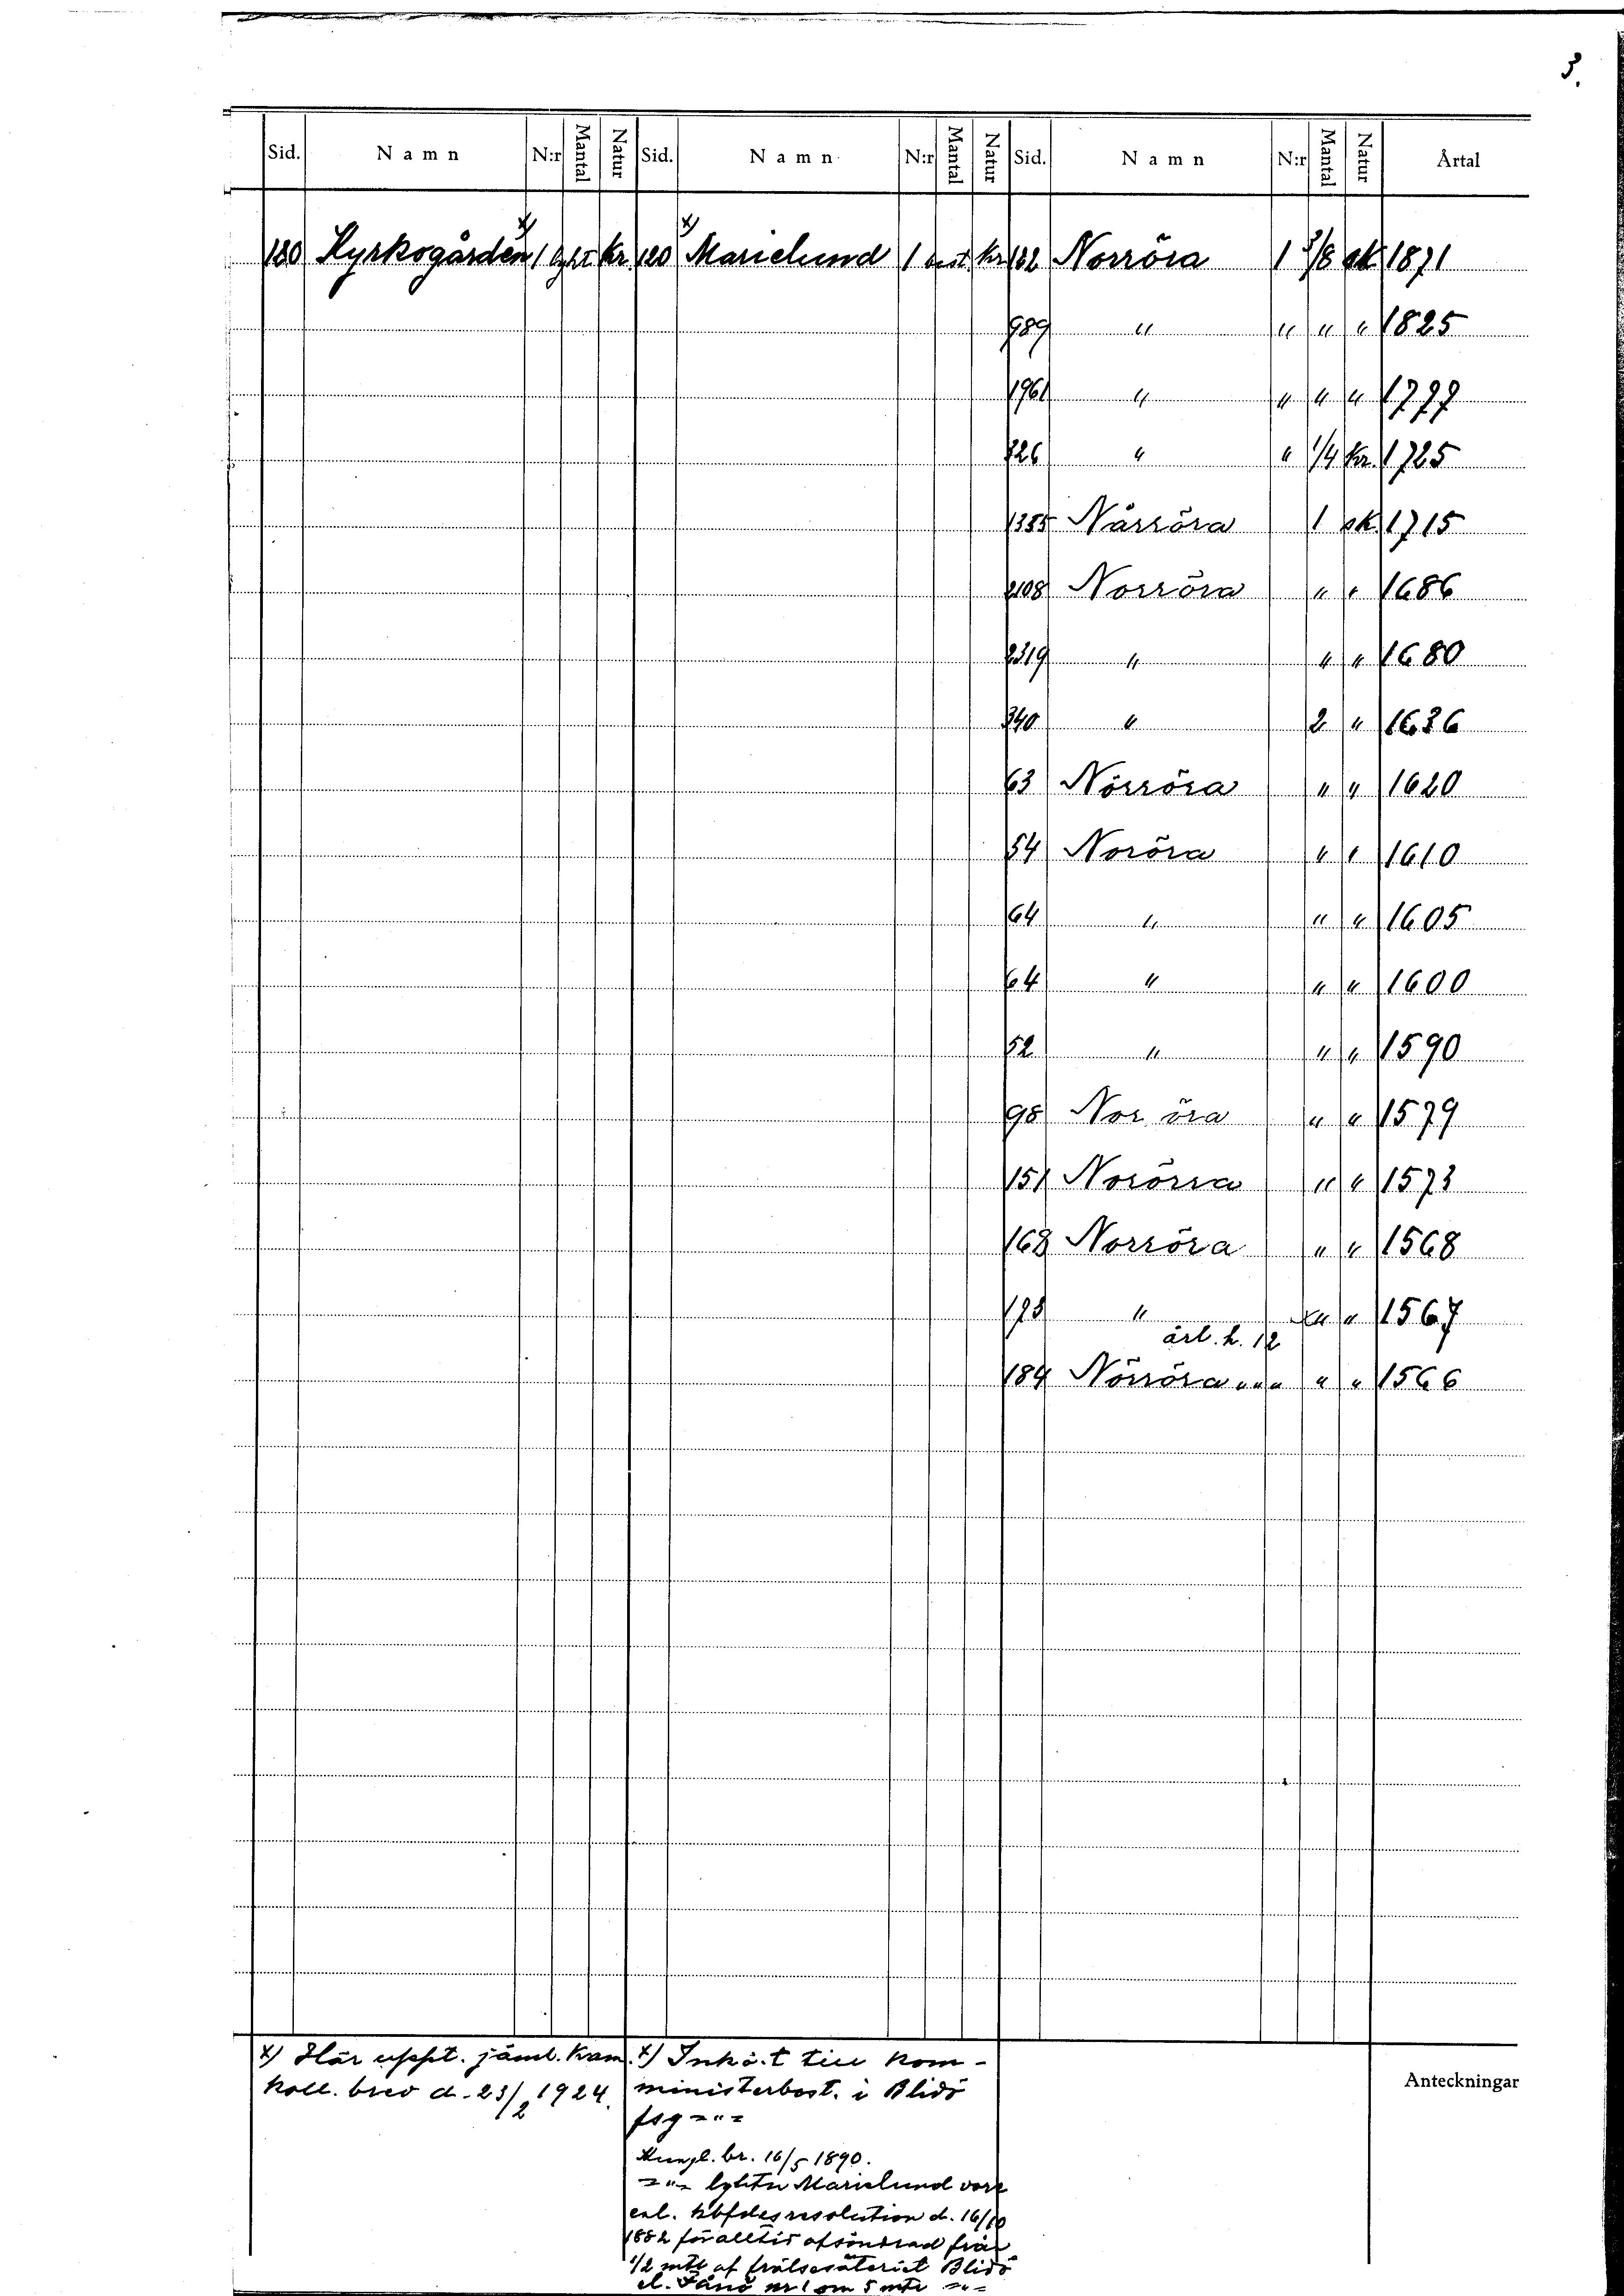 3.
Sid. Namn N:r Mantal Natur Sid. Namn N:r Mantal Natur Sid. Namn N:r Mantal Natur Årtal
180 Kyrkogården x) 1 lght kr. 120 x) Marielund 1 kr 162 Norröra 1 3/8 sk 1871
989 " " " " 1825
1961 " " " " 1777
726 " " 1/4 kr. 1725
1355 Nårröra 1 sk. 1715
2108 Norröra " " 1686
2319 " " " 1680
340 " 2 " 1636
63 Nörröra " " 1620
54 Noröra " " 1610
64 " " " 1605
64 " " " 1600
52 " " " 1590
98 Nor öra " " 1579
151 Norörra " " 1573
168 Norröra " " 1568
178 " " " 1567
ärl. h. 12
184 Nörröra " " " " " 1566
x) Här uppt. jäml. Kam.
koll. brev d. 23/2 1924.
x) Inkö.t till kom-
ministerbost. i Blidö
fsg ="=
Kungl. br. 16/5 1890.
="= lghtn Marielund vore
enl. kbfdesresolution d. 16/10
1882 för alltid afsöndrad från
1/2 mtl af frälsesäteriet Blidö
el. Fånö nr 1 om 5 mtl ="=
Anteckningar